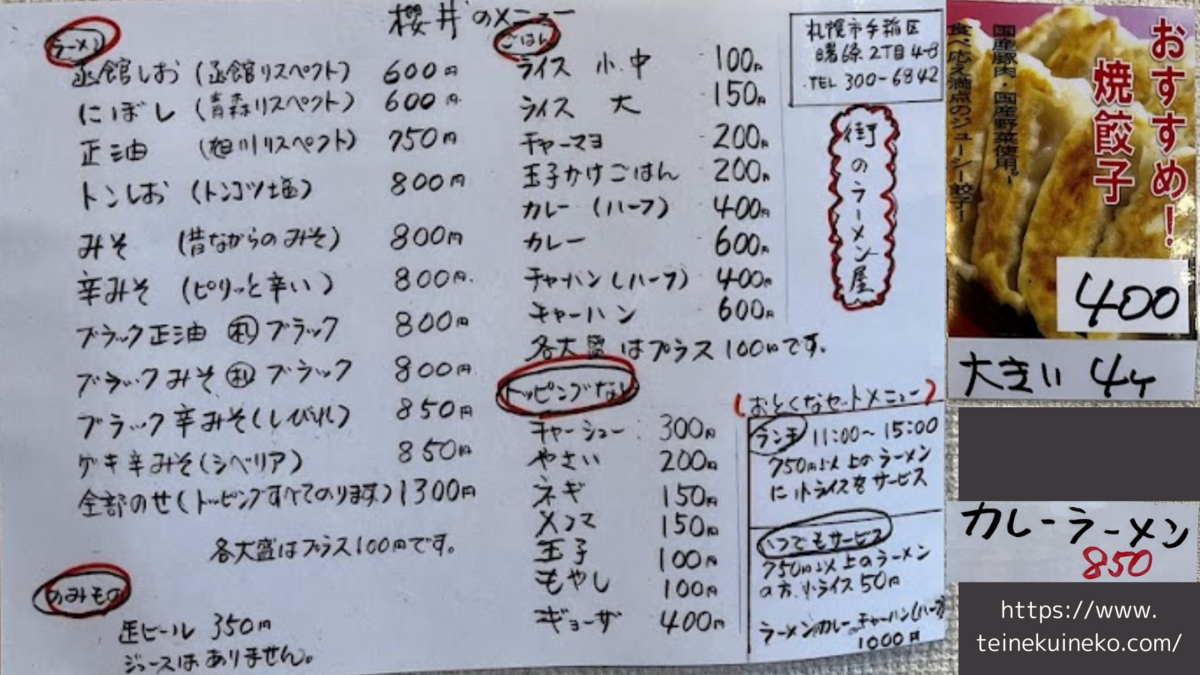 櫻井のメニュー
ラーメン
函館しお (函館リスペクト) 600円
にぼし (青森リスペクト) 600円
正油 (旭川リスペクト) 750円
トンしお (トンコツ塩) 800円
みそ (昔ながらのみそ) 800円
辛みそ (ピリッと辛い) 800円
ブラック正油 ㊑ ブラック 800円
ブラックみそ ㊑ ブラック 800円
ブラック辛みそ(しびれ) 850円
ゲキ辛みそ(シベリア) 850円
全部のせ(トッピングすべてのります) 1300円
各大盛はプラス100円です。
のみもの
缶ビール 350円
ジュースはありません。
ごはん
ライス 小.中 100円
ライス 大 150円
チャーマヨ 200円
玉子かけごはん 200円
カレー (ハーフ) 400円
カレー 600円
チャーハン(ハーフ) 400円
チャーハン 600円
各大盛はプラス100円です。
トッピングなし
チャーシュー 300円
やさい 200円
ネギ 150円
メンマ 150円
玉子 100円
もやし 100円
ギョーザ 400円
札幌市手稲区
曙緑2丁目4-8
TEL 300-6842
街のラーメン屋
(おとくなセットメニュー)
ランチ 11:00~15:00
750円以上のラーメン
に小ライスをサービス
いつでもサービス
750円以上のラーメン
の方、小ライス50円
ラーメンのカレー、チャーハン(ハーフ)
1000円
おすすめ!
焼餃子
国産豚肉・国産野菜使用。
食べ応え満点のジューシー餃子!
400
大きい 4ヶ
カレーラーメン
850
https://www.
teinekuineko.com/